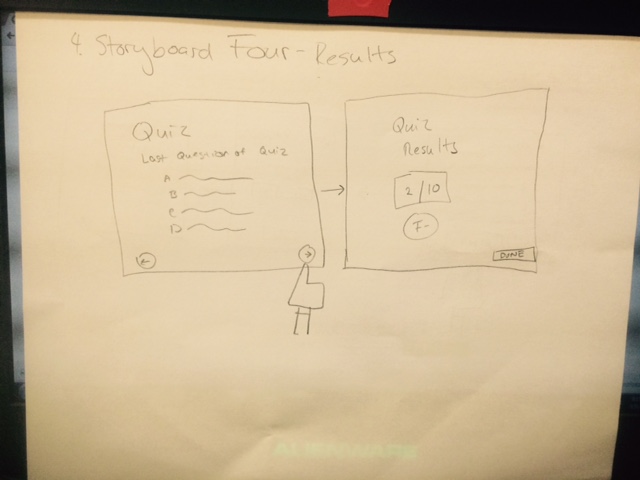 4. Storyboard Four - Results
Quiz
Last Question of Quiz
A
B
C
D
Quiz
Results
2/10
F-
DONE
ALIENWARE